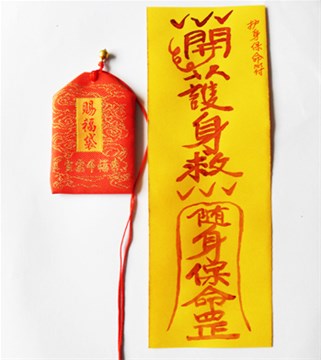 賜福袋
护身保命符
開
護身救
随身保命罡